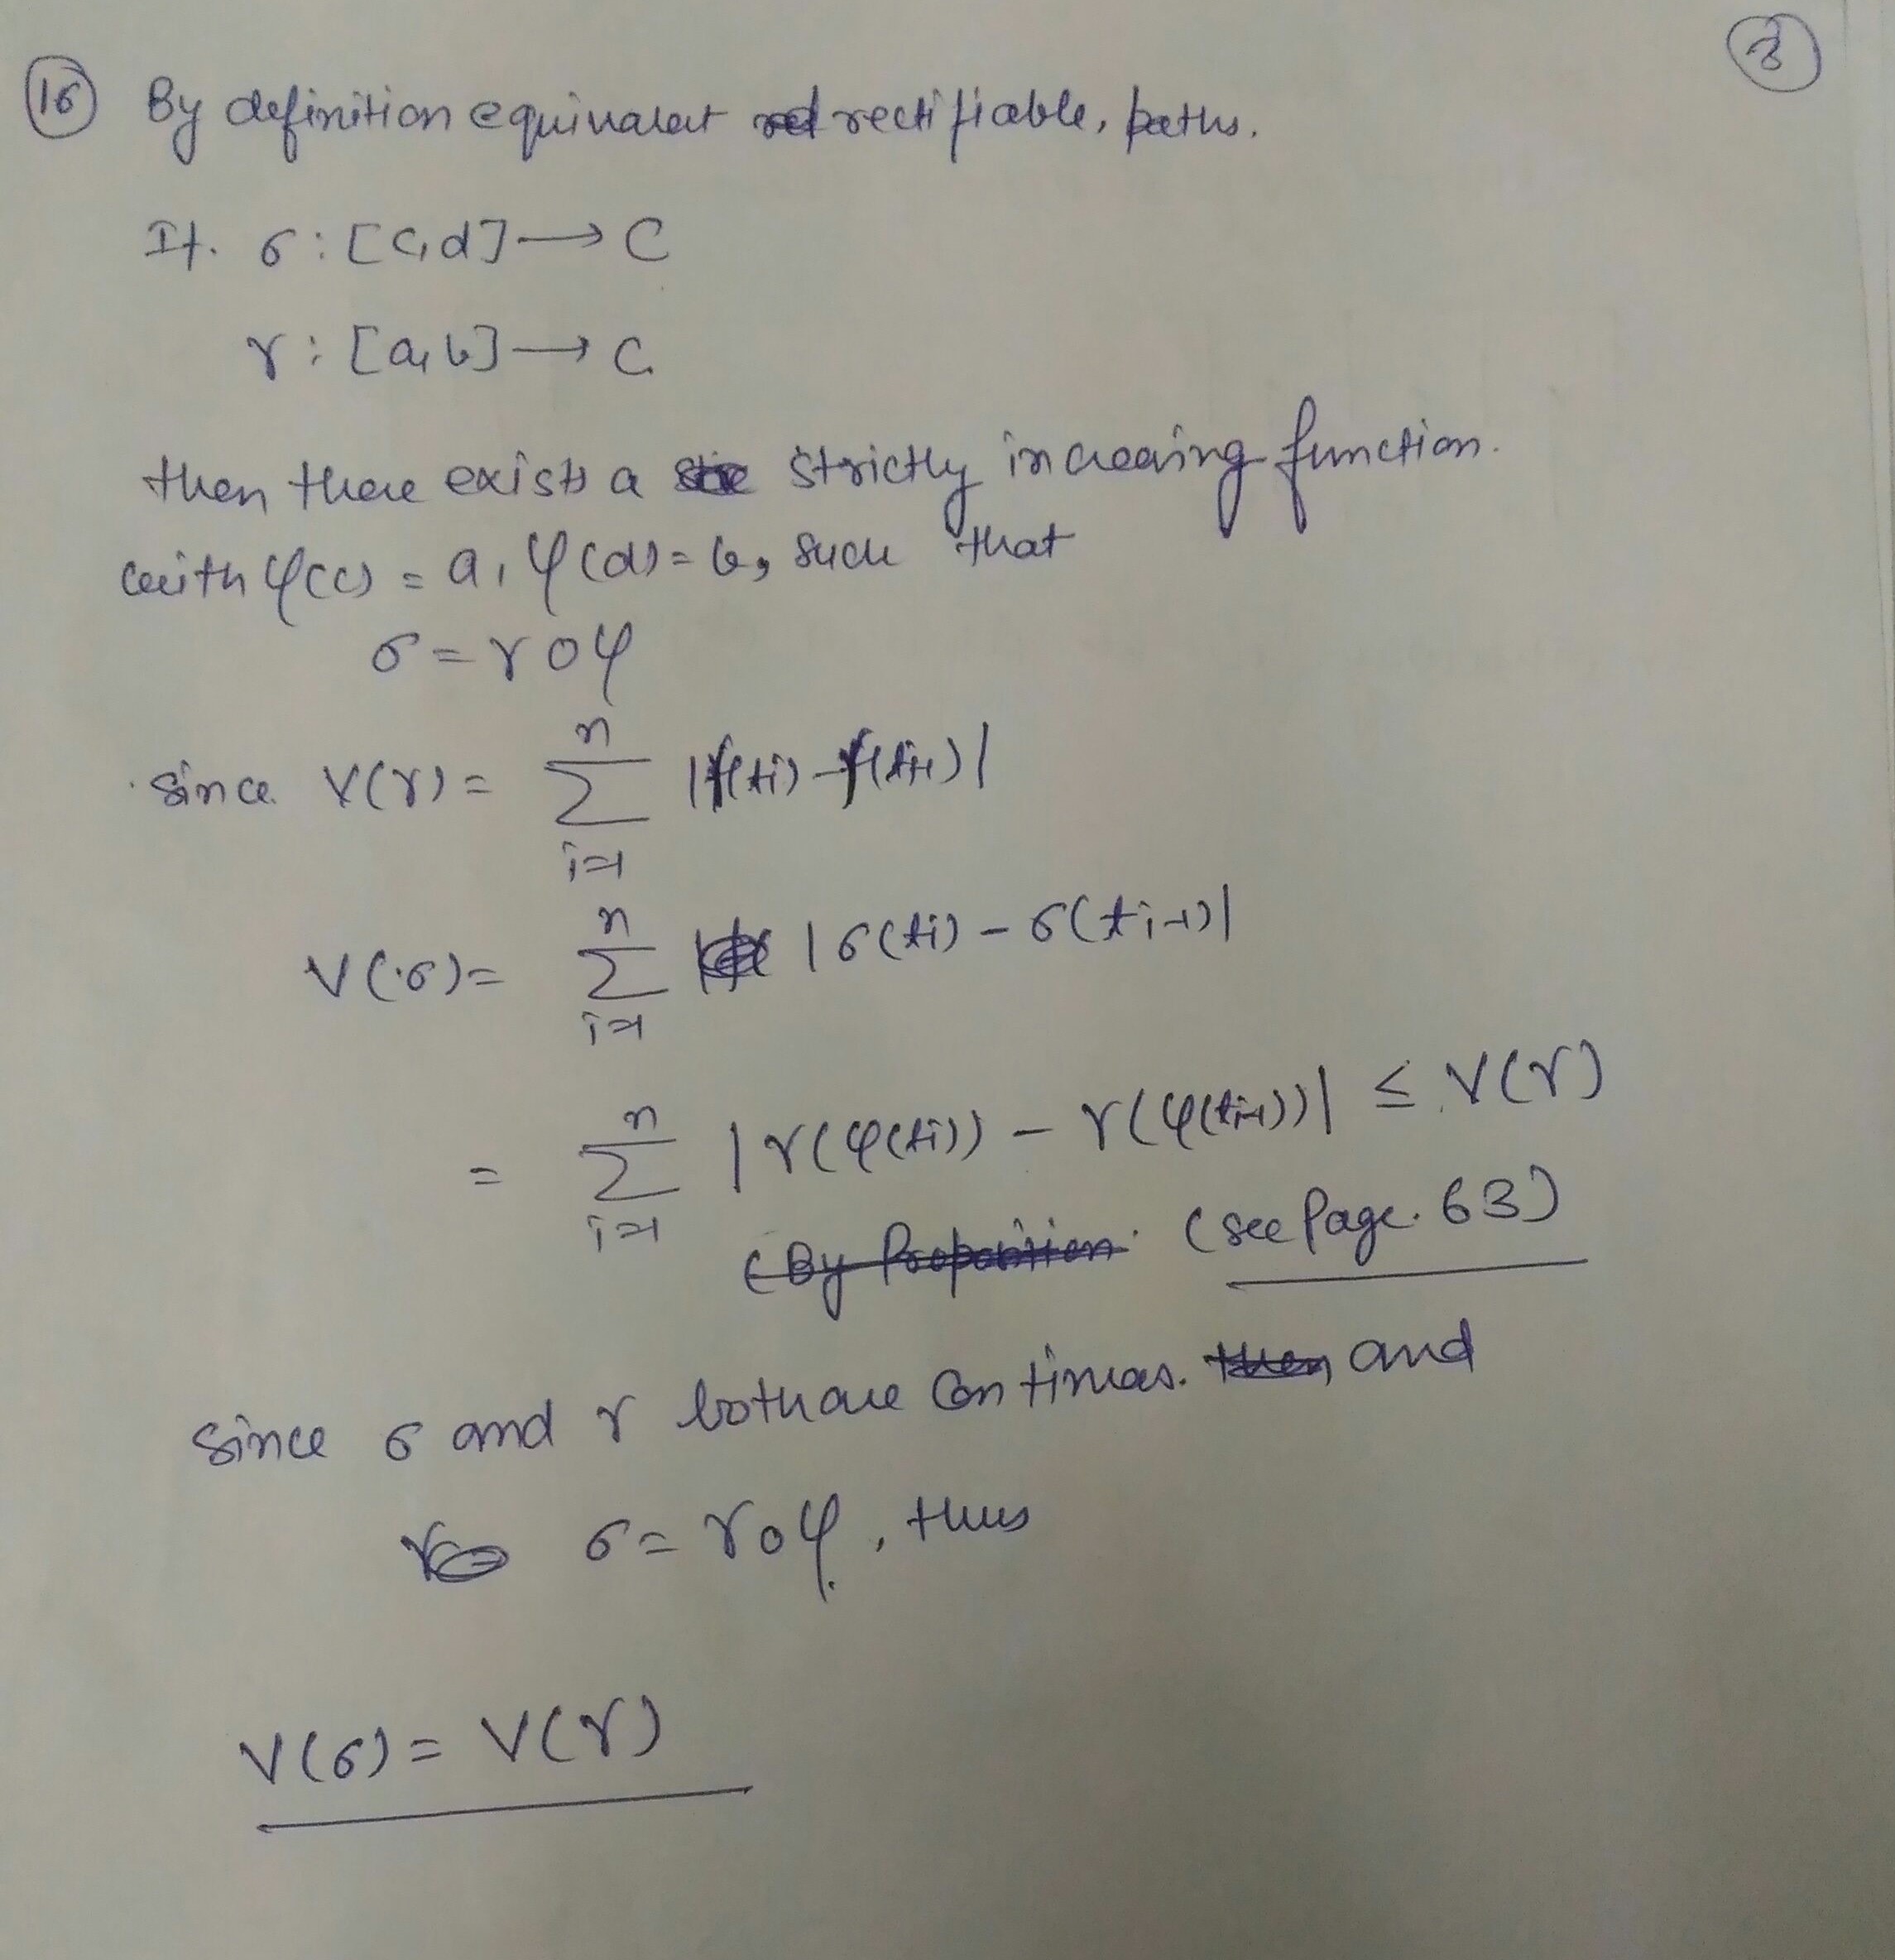 ③
⑯ By definition equivalent rectifiable, paths.
If. σ : [c, d] → C
γ : [a, b] → C
then there exists a strictly increasing function.
with φ(c) = a, φ(d) = b, such that
σ = γ o φ
since V(γ) = n Σ i=1 |γ(ti) - γ(ti-1)|
V(σ) = n Σ i=1 |σ(ti) - σ(ti-1)|
= n Σ i=1 |γ(φ(ti)) - γ(φ(ti-1))| ≤ V(γ)
(By Proposition (see Page. 63)
since σ and γ both are continuous. then and
σ = γ o φ, thus
V(σ) = V(γ)